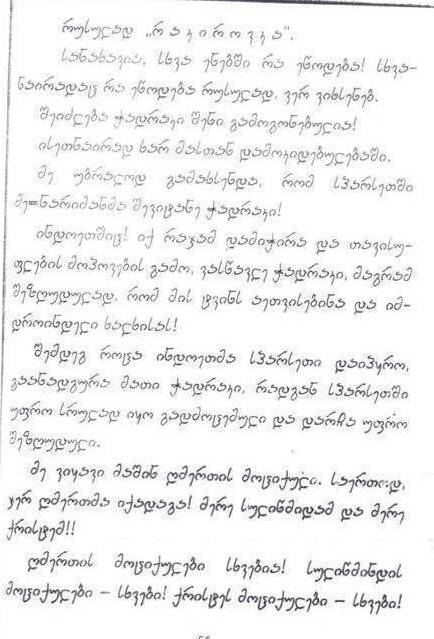 რუსულად „რ ა კ ი რ ო ვ კ ა“.
სანახავია, სხვა ენებში რა ეწოდება! სხვა-
ნაირადაც რა ეწოდება რუსულად, ვერ ვიხსენებ.
შეიძლება ჭადრაკი შენი გამოგონებულია!
ისეთნაირად ხარ მასთან დამოკიდებულებაში.
მე უბრალოდ გამახსენდა, რომ სპარსეთში
მე=ნარიმანმა შევიტანე ჭადრაკი!
ინდოეთშიც! იქ რაჯამ დამიჭირა და თავისუ-
ფლების მოპოვების გამო, ვასწავლე ჭადრაკი, მაგრამ
შეზღუდულად, რომ მის ტვინს აეთვისებინა და იმ-
დროინდელი ხალხისას!
შემდეგ როცა ინდოეთმა სპარსეთი დაიპყრო,
გაანადგურა მათი ჭადრაკი, რადგან სპარსეთში
უფრო სრულად იყო გადმოცემული და დარჩა უფრო
შეზღუდული.
მე ვიყავი მაშინ ღმერთის მოციქული. საერთოდ,
ჯერ ღმერთმა იქადაგა! მერე სულიწმიდამ და მერე
ქრისტემ!!
ღმერთის მოციქულები სხვებია! სულიწმინდის
მოციქულები – სხვები! ქრისტეს მოციქულები – სხვები!